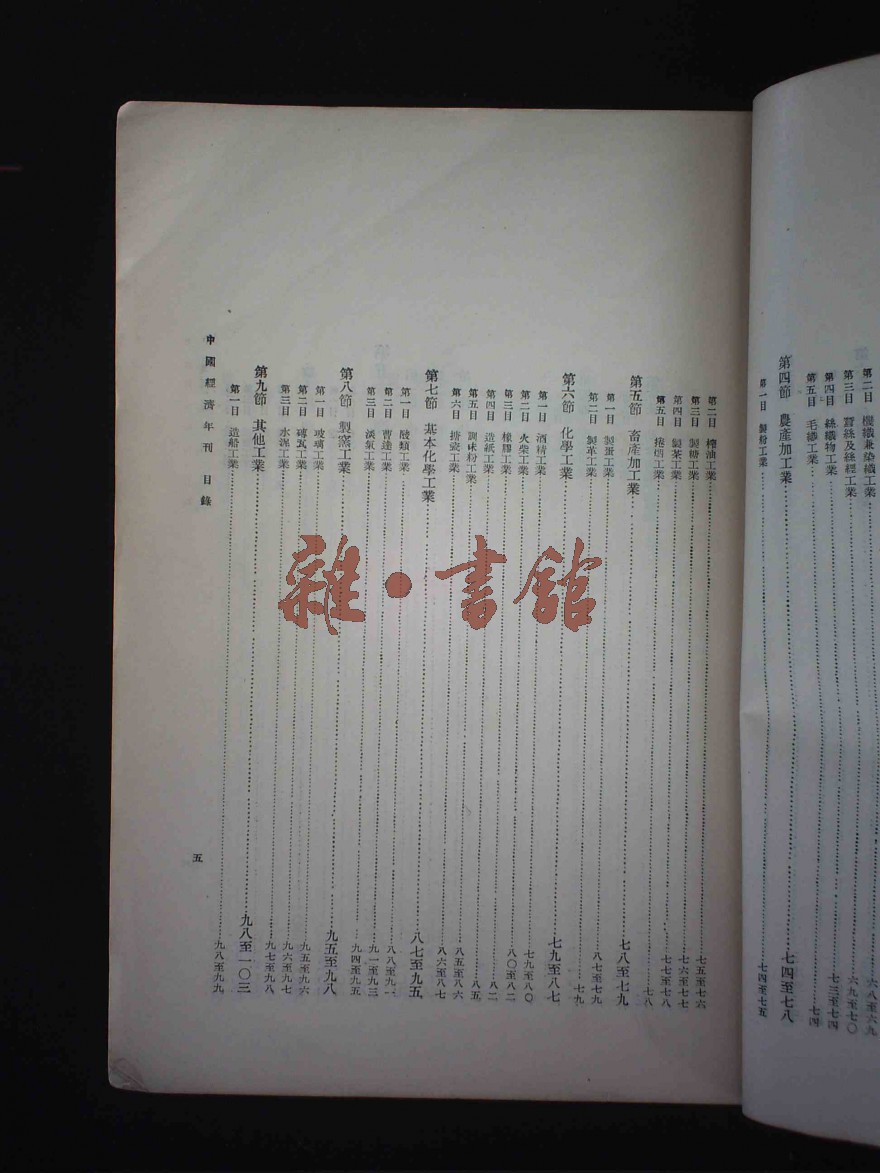 第二目 機織兼染織工業 六八至六九
第三目 蠶絲及絲經工業 六九至七〇
第四目 絲織物工業 七三至七四
第五目 毛織工業 七四
第四節 農產加工業 七四至七八
第一目 製粉工業 七四至七五
第二目 榨油工業 七五至七六
第三目 製糖工業 七六至七七
第四目 製茶工業 七七至七八
第五目 捲煙工業 七八
第五節 畜產加工業 七八至七九
第一目 製蛋工業 八七至七九
第二目 製革工業 七九
第六節 化學工業 七九至八七
第一目 酒精工業
第二目 火柴工業 七九至八〇
第三目 橡膠工業 八〇至八二
第四目 造紙工業 八二
第五目 調味粉工業 八五
第六目 搪瓷工業 八五至八六
八六至八七
第七節 基本化學工業 八七至九五
第一目 酸類工業
第二目 曹達工業 八八至九一
第三目 淡氣工業 九一至九三
九四至九五
第八節 製窯工業 九五至九八
第一目 玻璃工業
第二目 磚瓦工業 九五至九六
第三目 水泥工業 九六至九七
九七至九八
第九節 其他工業 九八至一〇三
第一目 造船工業 九八至九九
中國經濟年刊 目錄
五
雜·書館